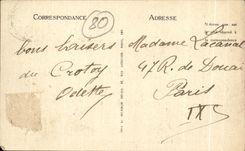 CORRESPONDANCE
80
ADRESSE
bons baisers
du Crotoy
Odette
Madame Lacanal
47 R. de Douai
Paris
IX